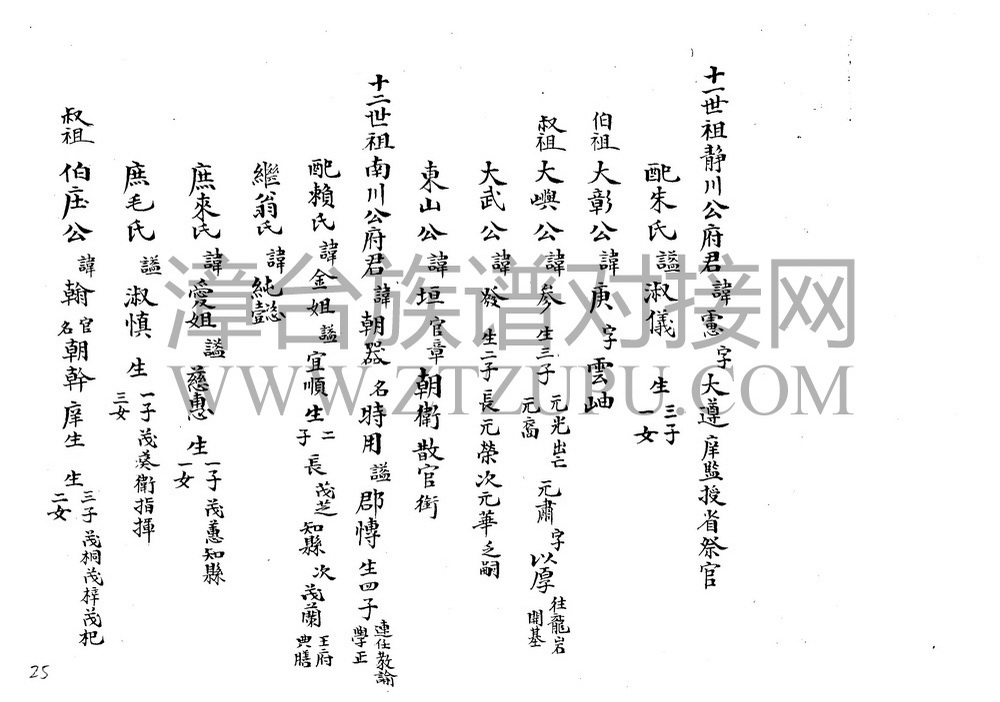 十一世祖靜川公府君諱憲字大遵庠監授省祭官
配朱氏謚淑儀生三子一女
伯祖大彰公諱庚字雲岫
叔祖大嶼公諱參生三子元光出亡元裔元肅字以厚往龍岩開基
大武公諱發生二子長元榮次元華乏嗣
東山公諱垣官章朝衛散官銜
十二世祖南川公府君諱朝器名時用謚郡慱生四子連仕教諭學正
配賴氏諱金姐謚宜順生二子長茂芝知縣次茂蘭王府典膳
繼翁氏諱純懿
庶來氏諱愛姐謚慈惠生一子茂蕙知縣一女
庶毛氏謚淑慎生一子茂葵衛指揮三女
叔祖伯庄公諱翰官名朝幹庠生生三子茂桐茂梓茂杞二女
25
漳台族谱对接网
WWW.ZTZUPU.COM